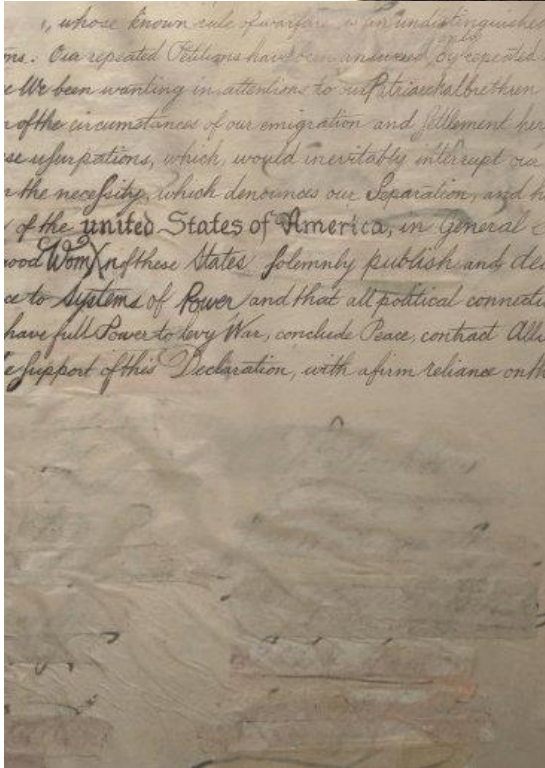 , whose known rule of warfare, is an undistinguished
ns. Our repeated Petitions have been answered only by repeated
e We been wanting in attentions to our Patriarchal brethren
n of the circumstances of our emigration and settlement her
se usurpations, which, would inevitably interrupt our
n the necessity, which denounces our Separation, and h
of the united States of America, in General C
good WomXn of these States, solemnly publish and dec
ce to Systems of Power, and that all political connecti
have full Power to levy War, conclude Peace, contract Alli
e support of this Declaration, with a firm reliance on th